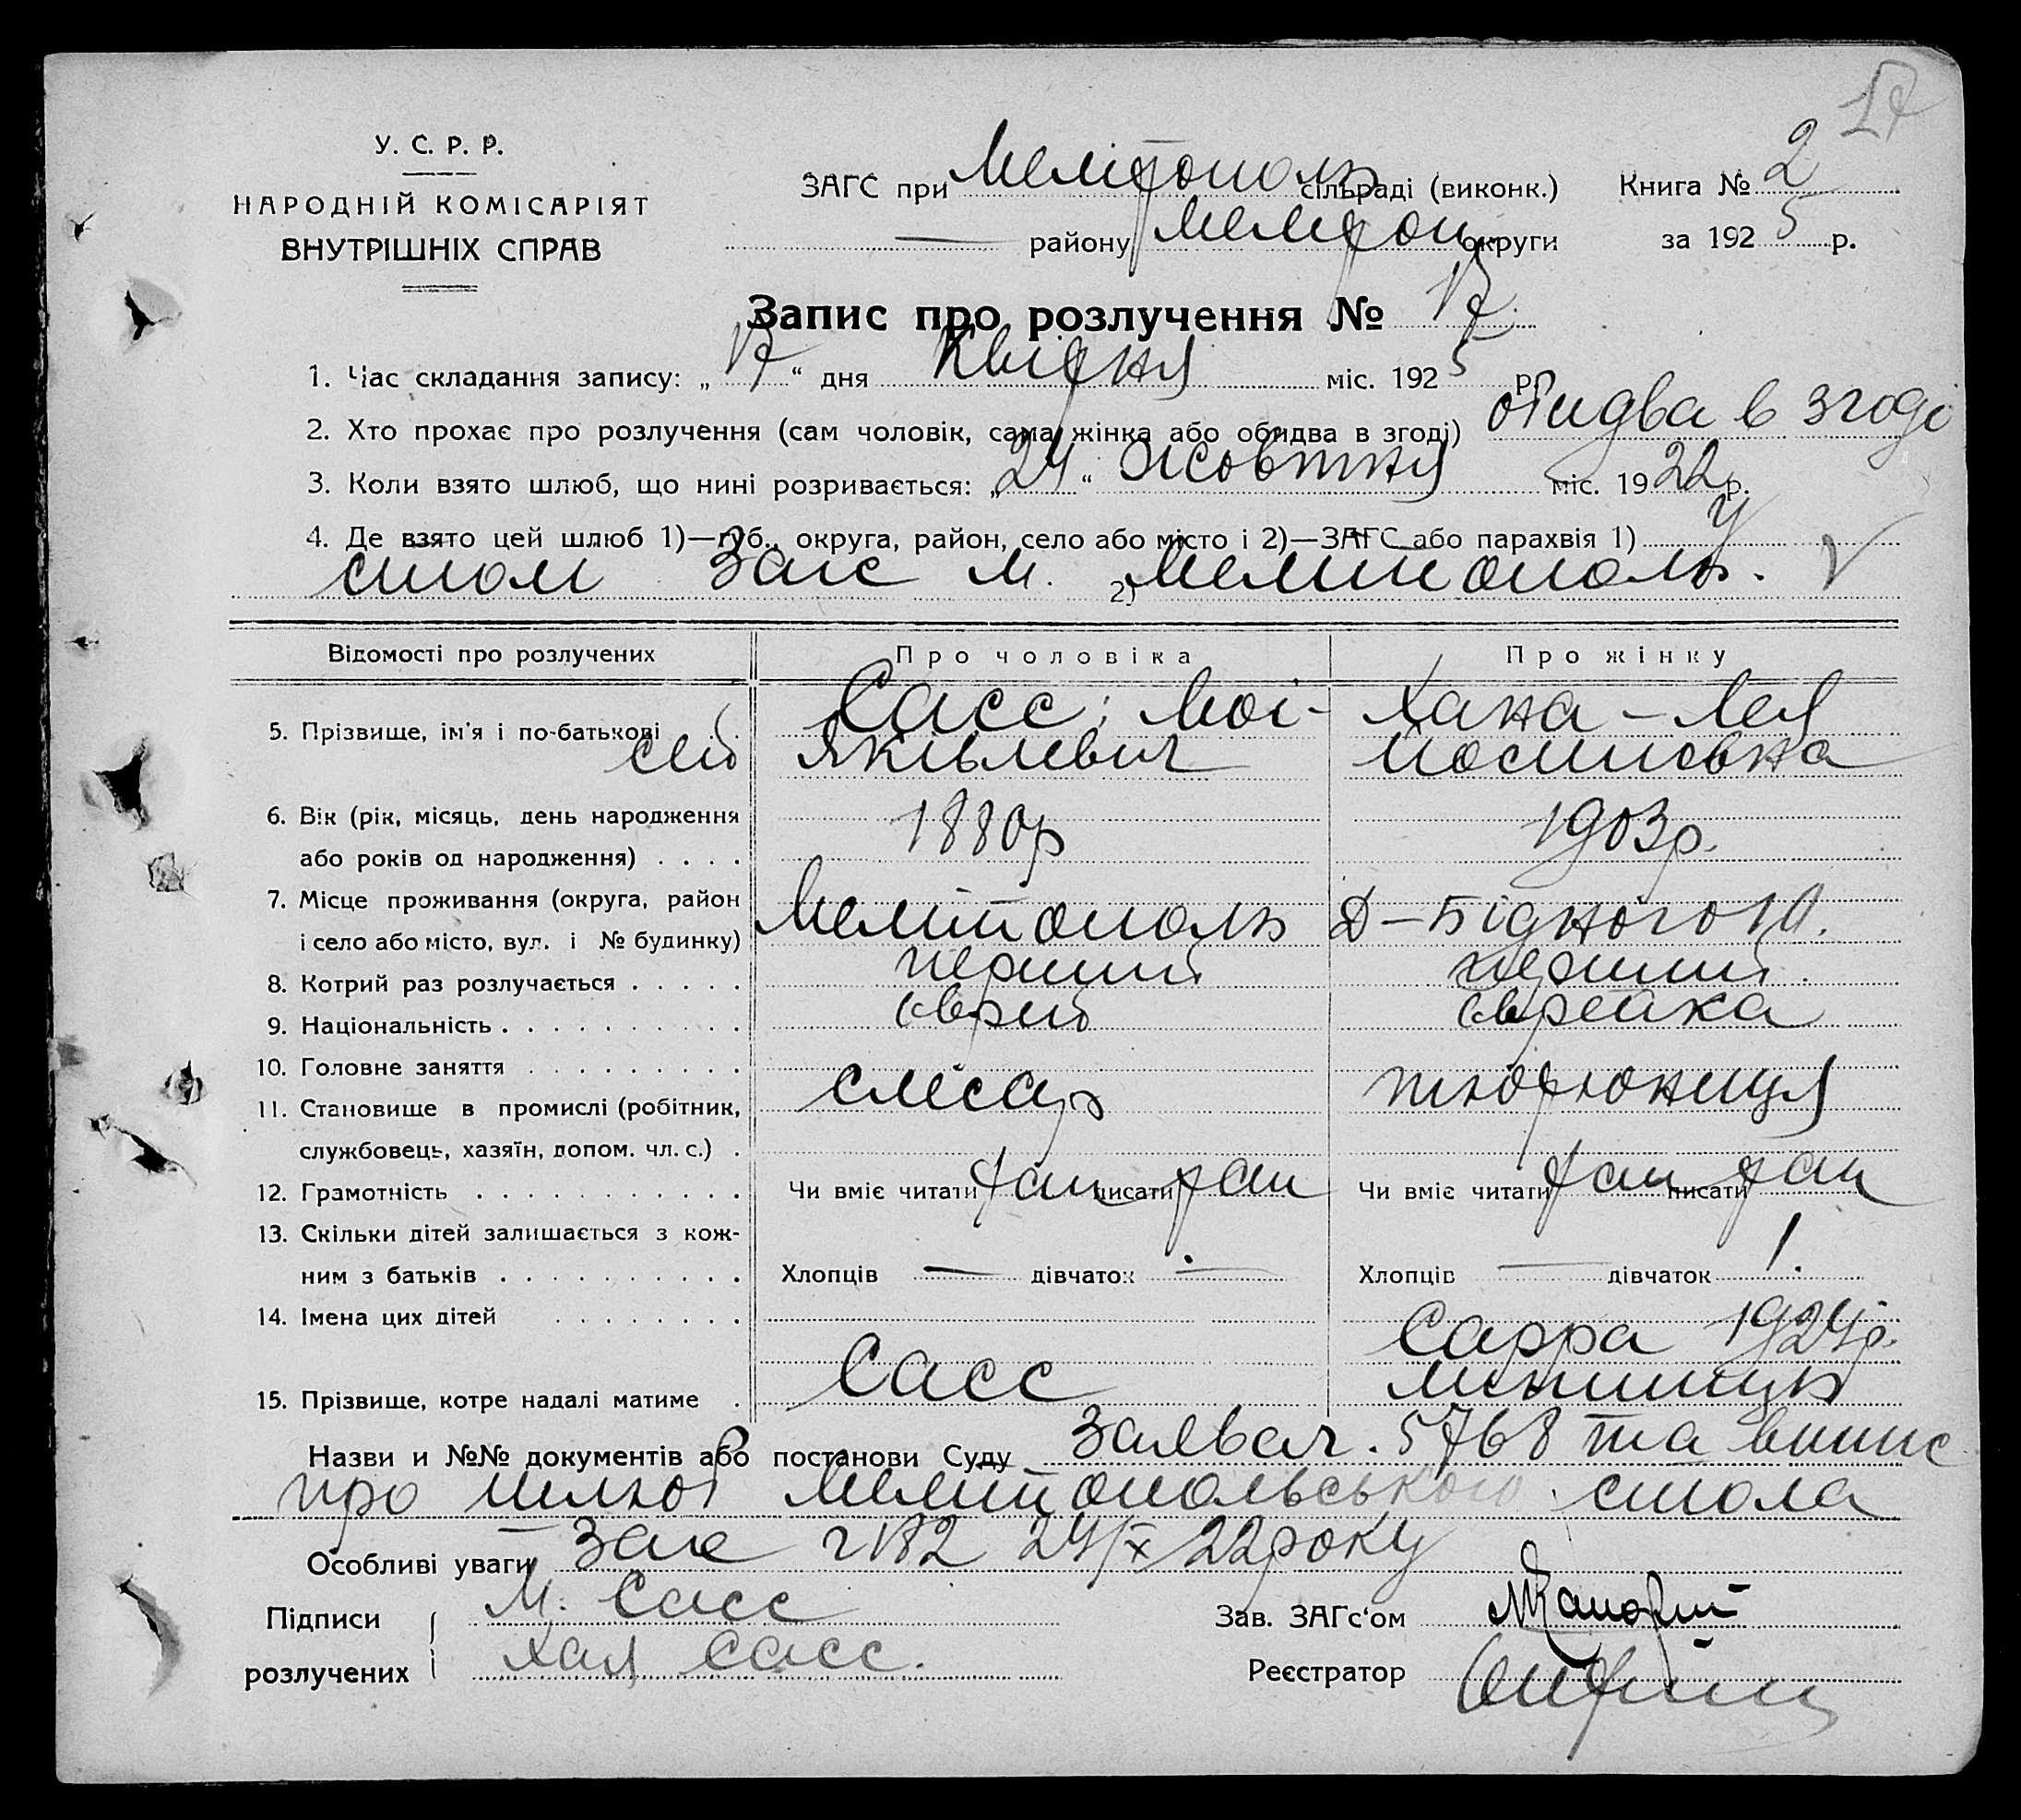 17
У. С. Р. Р.
НАРОДНІЙ КОМІСАРІЯТ
ВНУТРІШНІХ СПРАВ
ЗАГС при Мелітополь сільраді (виконк.) Книга № 2
— району Мелітоп округи за 1925 р.
Запис про розлучення № 17
1. Час складання запису: „17“ дня Квітня міс. 1925 р.
2. Хто прохає про розлучення (сам чоловік, сама жінка або обидва в згоді) обидва в згоді
3. Коли взято шлюб, що нині розривається: „24“ Жовтня міс. 1922 р.
4. Де взято цей шлюб 1)—губ., округа, район, село або місто і 2)—ЗАГС або парахвія 1) у
столі Загс м. 2) Мелитополь.
Відомості про розлучених Про чоловіка Про жінку
5. Прізвище, ім'я і по-батькові Сасс; Мої- Хана-Лея
сей Яківлевич Йосиповна
6. Вік (рік, місяць, день народження 1880р 1903р.
або років од народження)
7. Місце проживання (округа, район
і село або місто, вул. і № будинку) Мелітополь Д-Бідного 10.
8. Котрий раз розлучається перший перший.
9. Національність єврей єврейка
10. Головне заняття
11. Становище в промислі (робітник, слюсарь тютюниця
службовець, хазяїн, допом. чл. с.)
12. Грамотність Чи вміє читати так писати так Чи вміє читати так писати так
13. Скільки дітей залишається з кож-
ним з батьків Хлопців — дівчаток — Хлопців — дівчаток 1.
14. Імена цих дітей Сарра 1924р.
15. Прізвище, котре надалі матиме Сасс
Назви и №№ документів або постанови Суду Заява ч. 5768 та випис
про шлюб Мелитопольського стола
Особливі уваги Загс ч 182 24/X 22 року
Підписи М. Сасс Зав. ЗАГс‘ом
розлучених Хая Сасс. Реєстратор